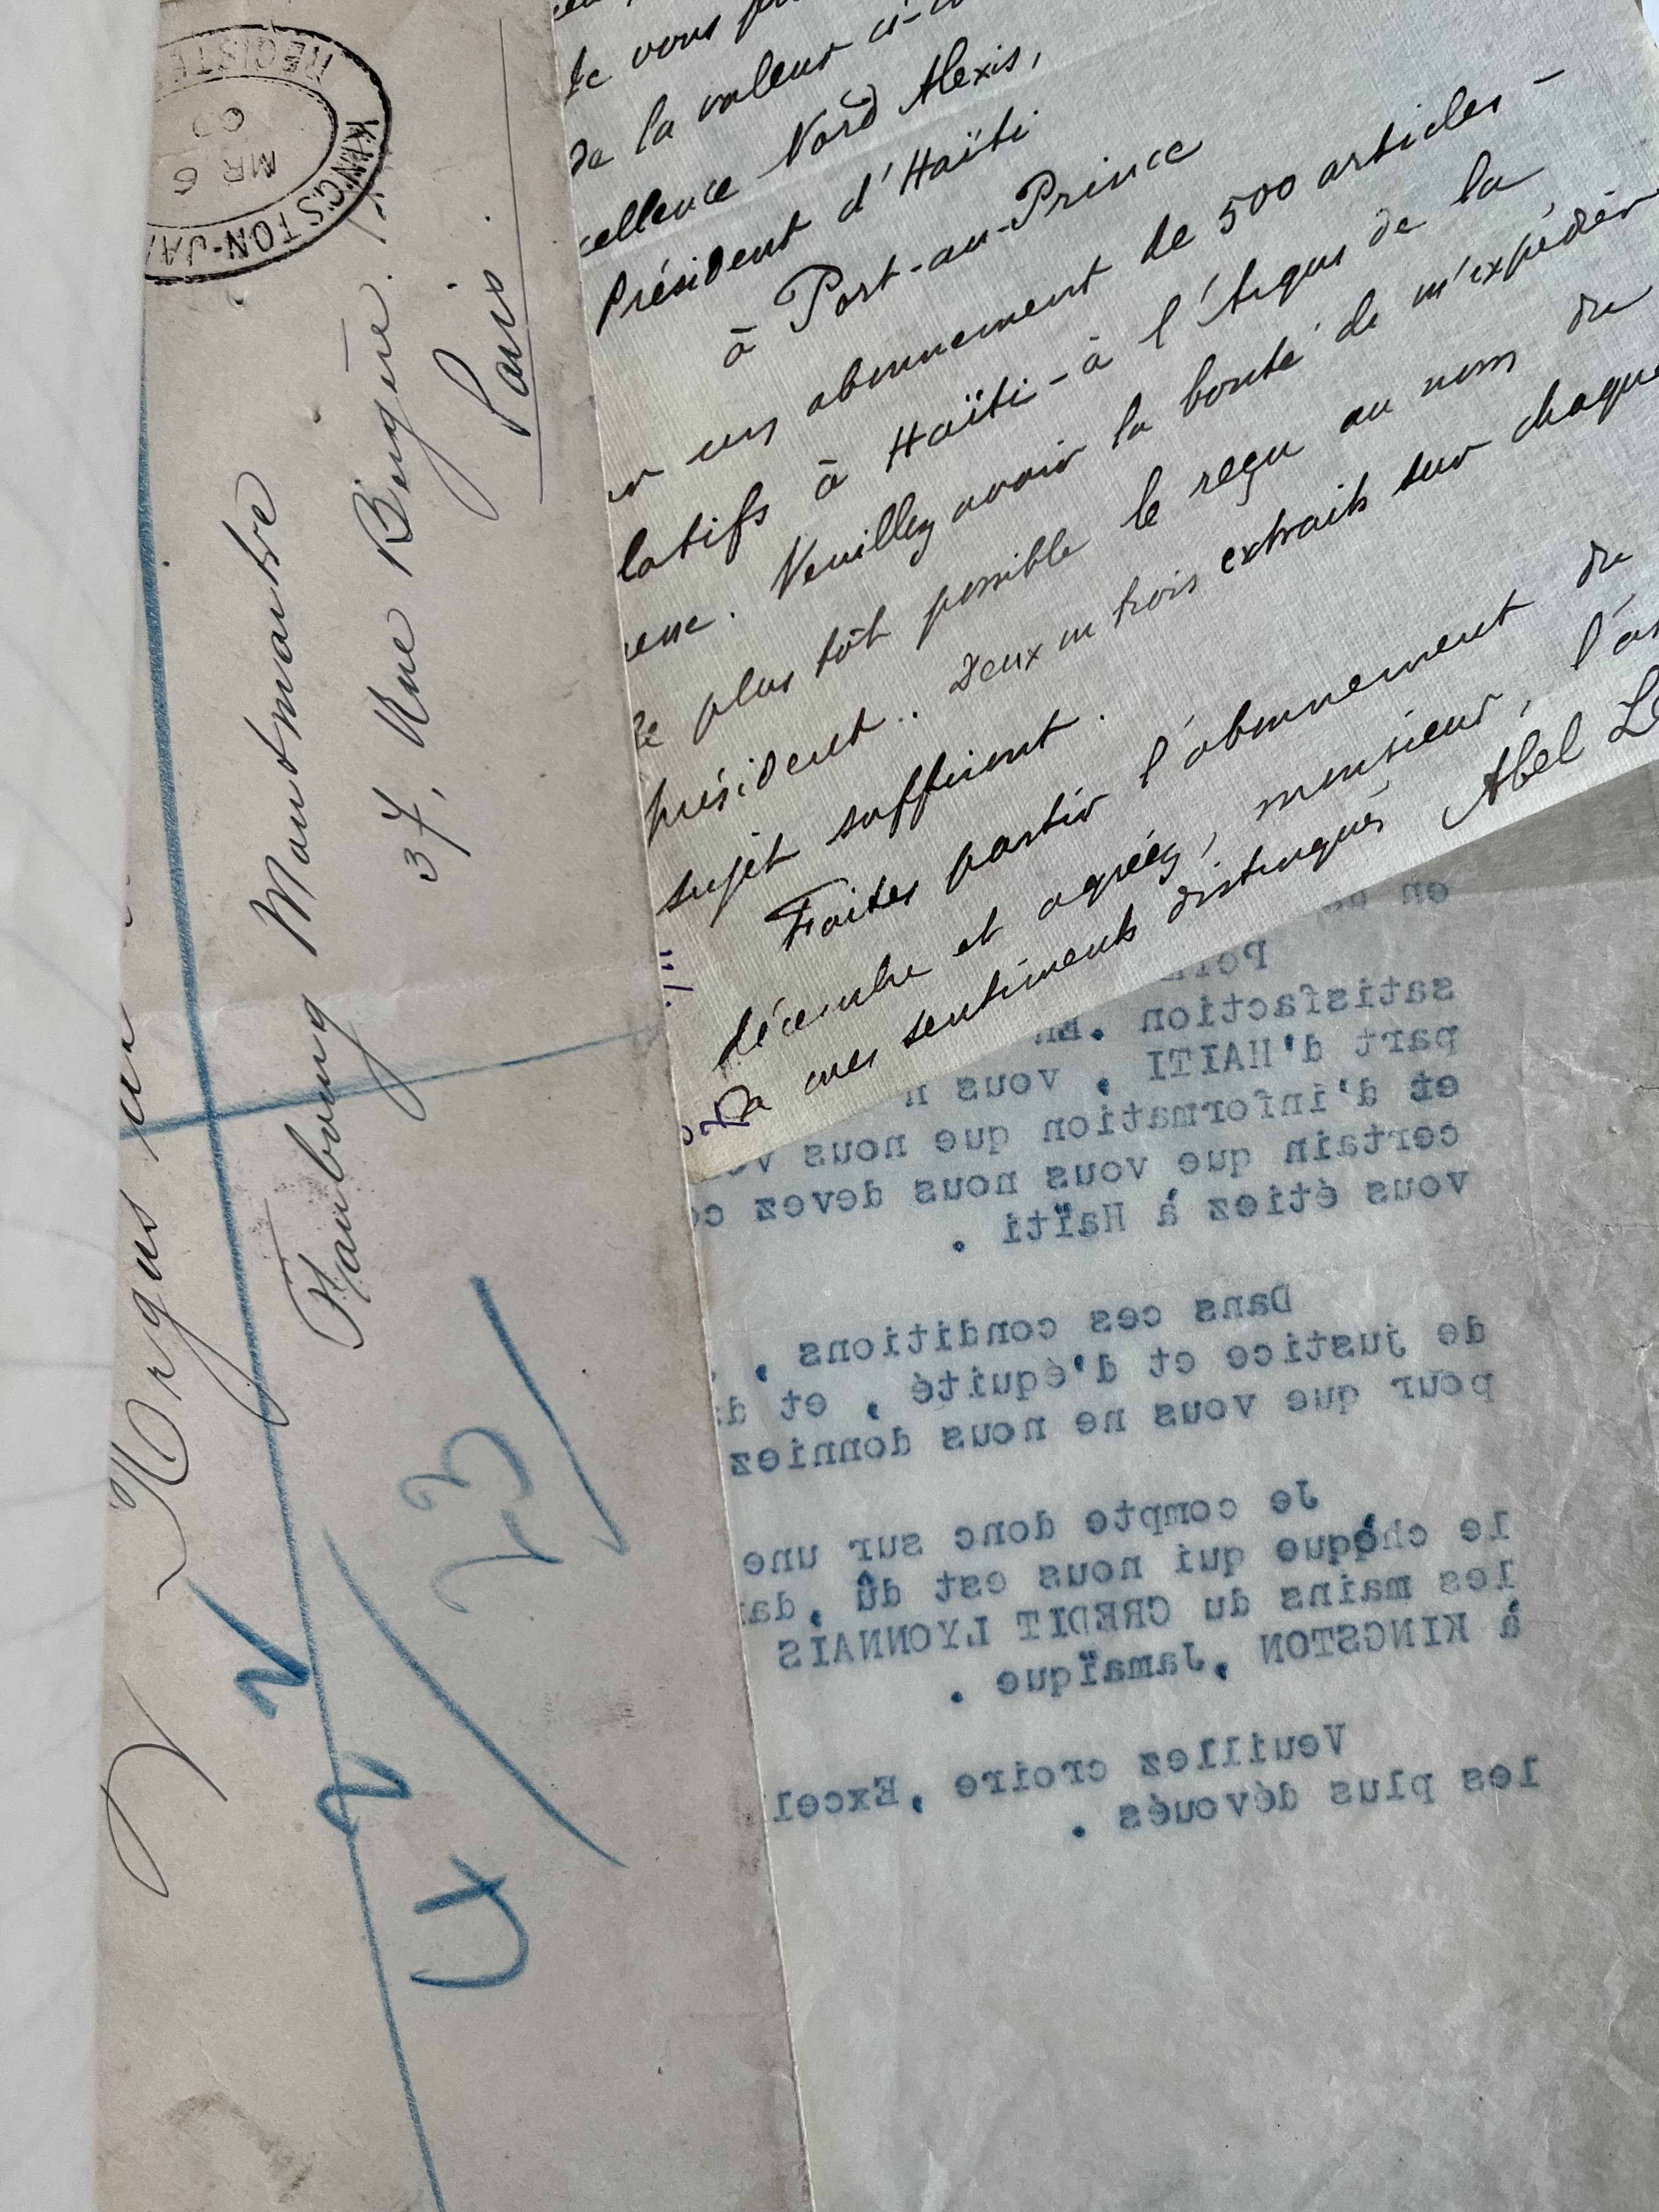 KINGSTON-JA
REGISTE
MR 6
Faubourg Montmartre
37, Rue Bergère.
Paris.
42
N
23
de vous
de la valeur ci-
cellence Nord Alexis,
Président d'Haïti
à Port-au-Prince
un abonnement de 500 articles -
latifs à Haïti - à l'Argus de la
Veuillez avoir la bonté de m'expédier
le plus tôt possible le reçu au nom du
président.. Deux ou trois extraits sur chaque
sujet suffiront.
Faites partir l'abonnement du
décembre et agréez, monsieur, l'as
de mes sentiments distingués Abel Lé
en
satisfaction .En
part d'HAITI , vous n
et d'information que nous vo
certain que vous nous devez co
vous étiez à Haïti .
Dans ces conditions ,
de justice et d'équité , et da
pour que vous ne nous donniez
Je compte donc sur une
le chèque qui nous est dû ,da
les mains du CREDIT LYONNAIS
à KINGSTON ,Jamaïque .
Veuillez croire ,Excel
les plus dévoués .